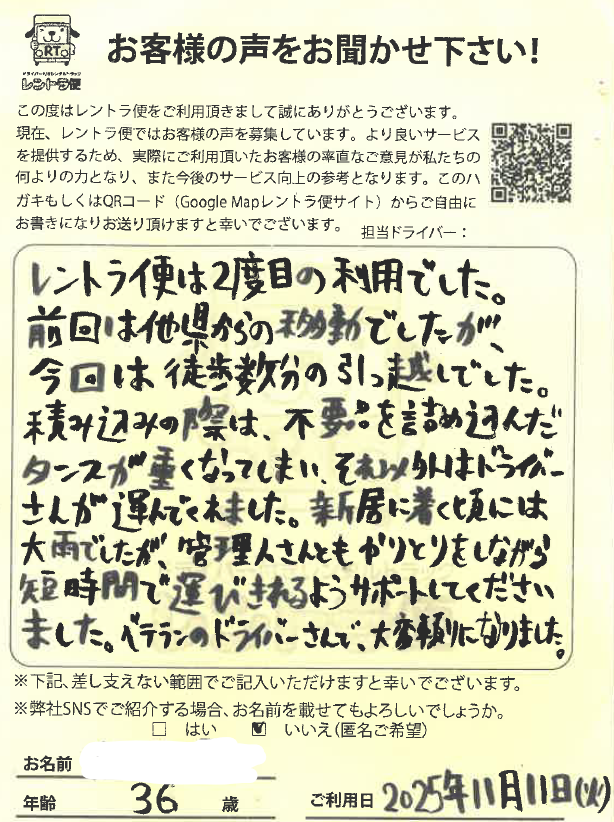 RT
ドライバー付きレンタルトラック
レントラ便
お客様の声をお聞かせ下さい!
この度はレントラ便をご利用頂きまして誠にありがとうございます。
現在、レントラ便ではお客様の声を募集しています。より良いサービス
を提供するため、実際にご利用頂いたお客様の率直なご意見が私たちの
何よりの力となり、また今後のサービス向上の参考となります。このハ
ガキもしくはQRコード（Google Mapレントラ便サイト）からご自由に
お書きになりお送り頂けますと幸いでございます。
担当ドライバー：
レントラ便は2度目の利用でした。
前回は他県からの移動でしたが、
今回は徒歩数分の引っ越しでした。
積み込みの際は、不要品を詰め込んだ
タンスが重くなってしまい、それ以外はドライバー
さんが運んでくれました。新居に着く頃には
大雨でしたが、管理人さんともやりとりをしながら
短時間で運びきれるようサポートしてください
ました。ベテランのドライバーさんで、大変頼りになりました。
※下記、差し支えない範囲でご記入いただけますと幸いでございます。
※弊社SNSでご紹介する場合、お名前を載せてもよろしいでしょうか。
□ はい ☑ いいえ(匿名ご希望)
お名前
年齢 36 歳 ご利用日 2025年11月11日(火)